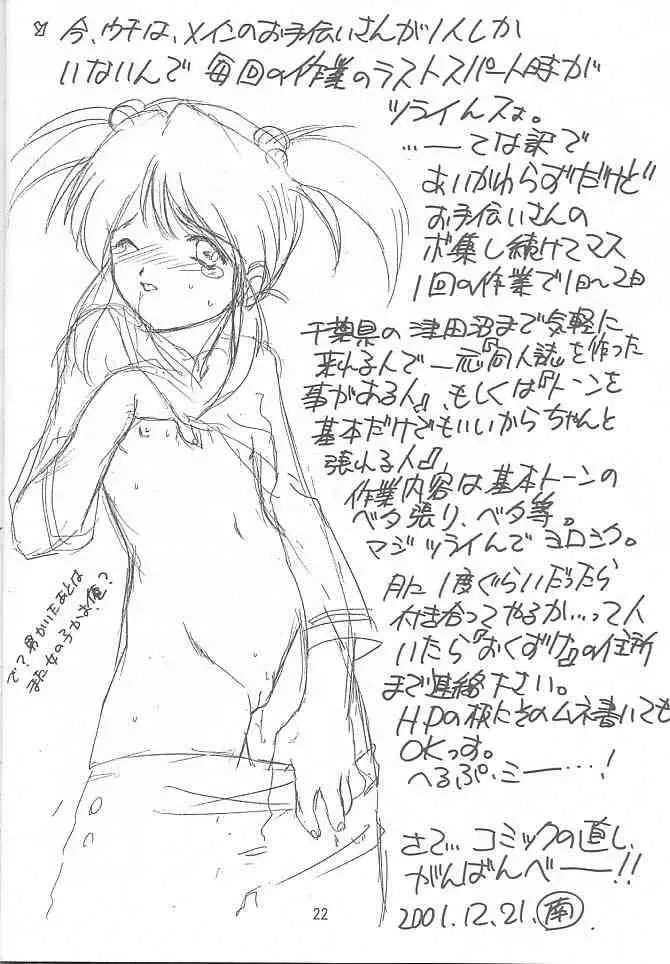 今、ウチは、メインのお手伝いさんが1人しか
いないんで 毎回の作業のラストスパート時が
ツライんスよ。
…ーてな訳で
あいかわらずだけど
お手伝いさんの
ボ集し続けてマス
1回の作業で1日〜2日
千葉県の津田沼まで気軽に
来れる人で一応『同人誌を作った
事がある人』、もしくは『トーンを
基本だけでもいいからちゃんと
張れる人』、
作業内容は基本トーンの
ベタ張り、ベタ等。
マジツライんでヨロシク。
月に1度ぐらいだったら
付き合ってやるか…って人
いたら『おくづけ』の住所
まで連絡下さい。
H.Pの板にそのムネ書いても
OKっす。
へるぷ・ミー…！
さて…コミックの直し、
がんばんべー!!
2001.12.21.南
で？男かいたあとは
また女の子かよ俺？
22